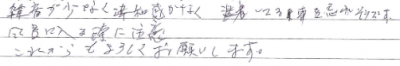 雑音が少なく違和感がなく 装着している事を忘れそうです。
に注意
これからもよろしくお願いします。